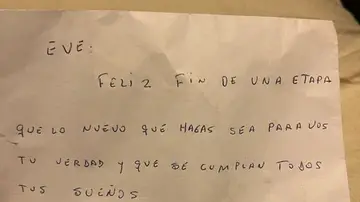 EVE:
FELIZ FIN DE UNA ETAPA
QUE LO NUEVO QUÉ HAGAS SEA PARA VOS
TU VERDAD Y QUE SE CUMPLAN TODOS
TUS SUEÑOS